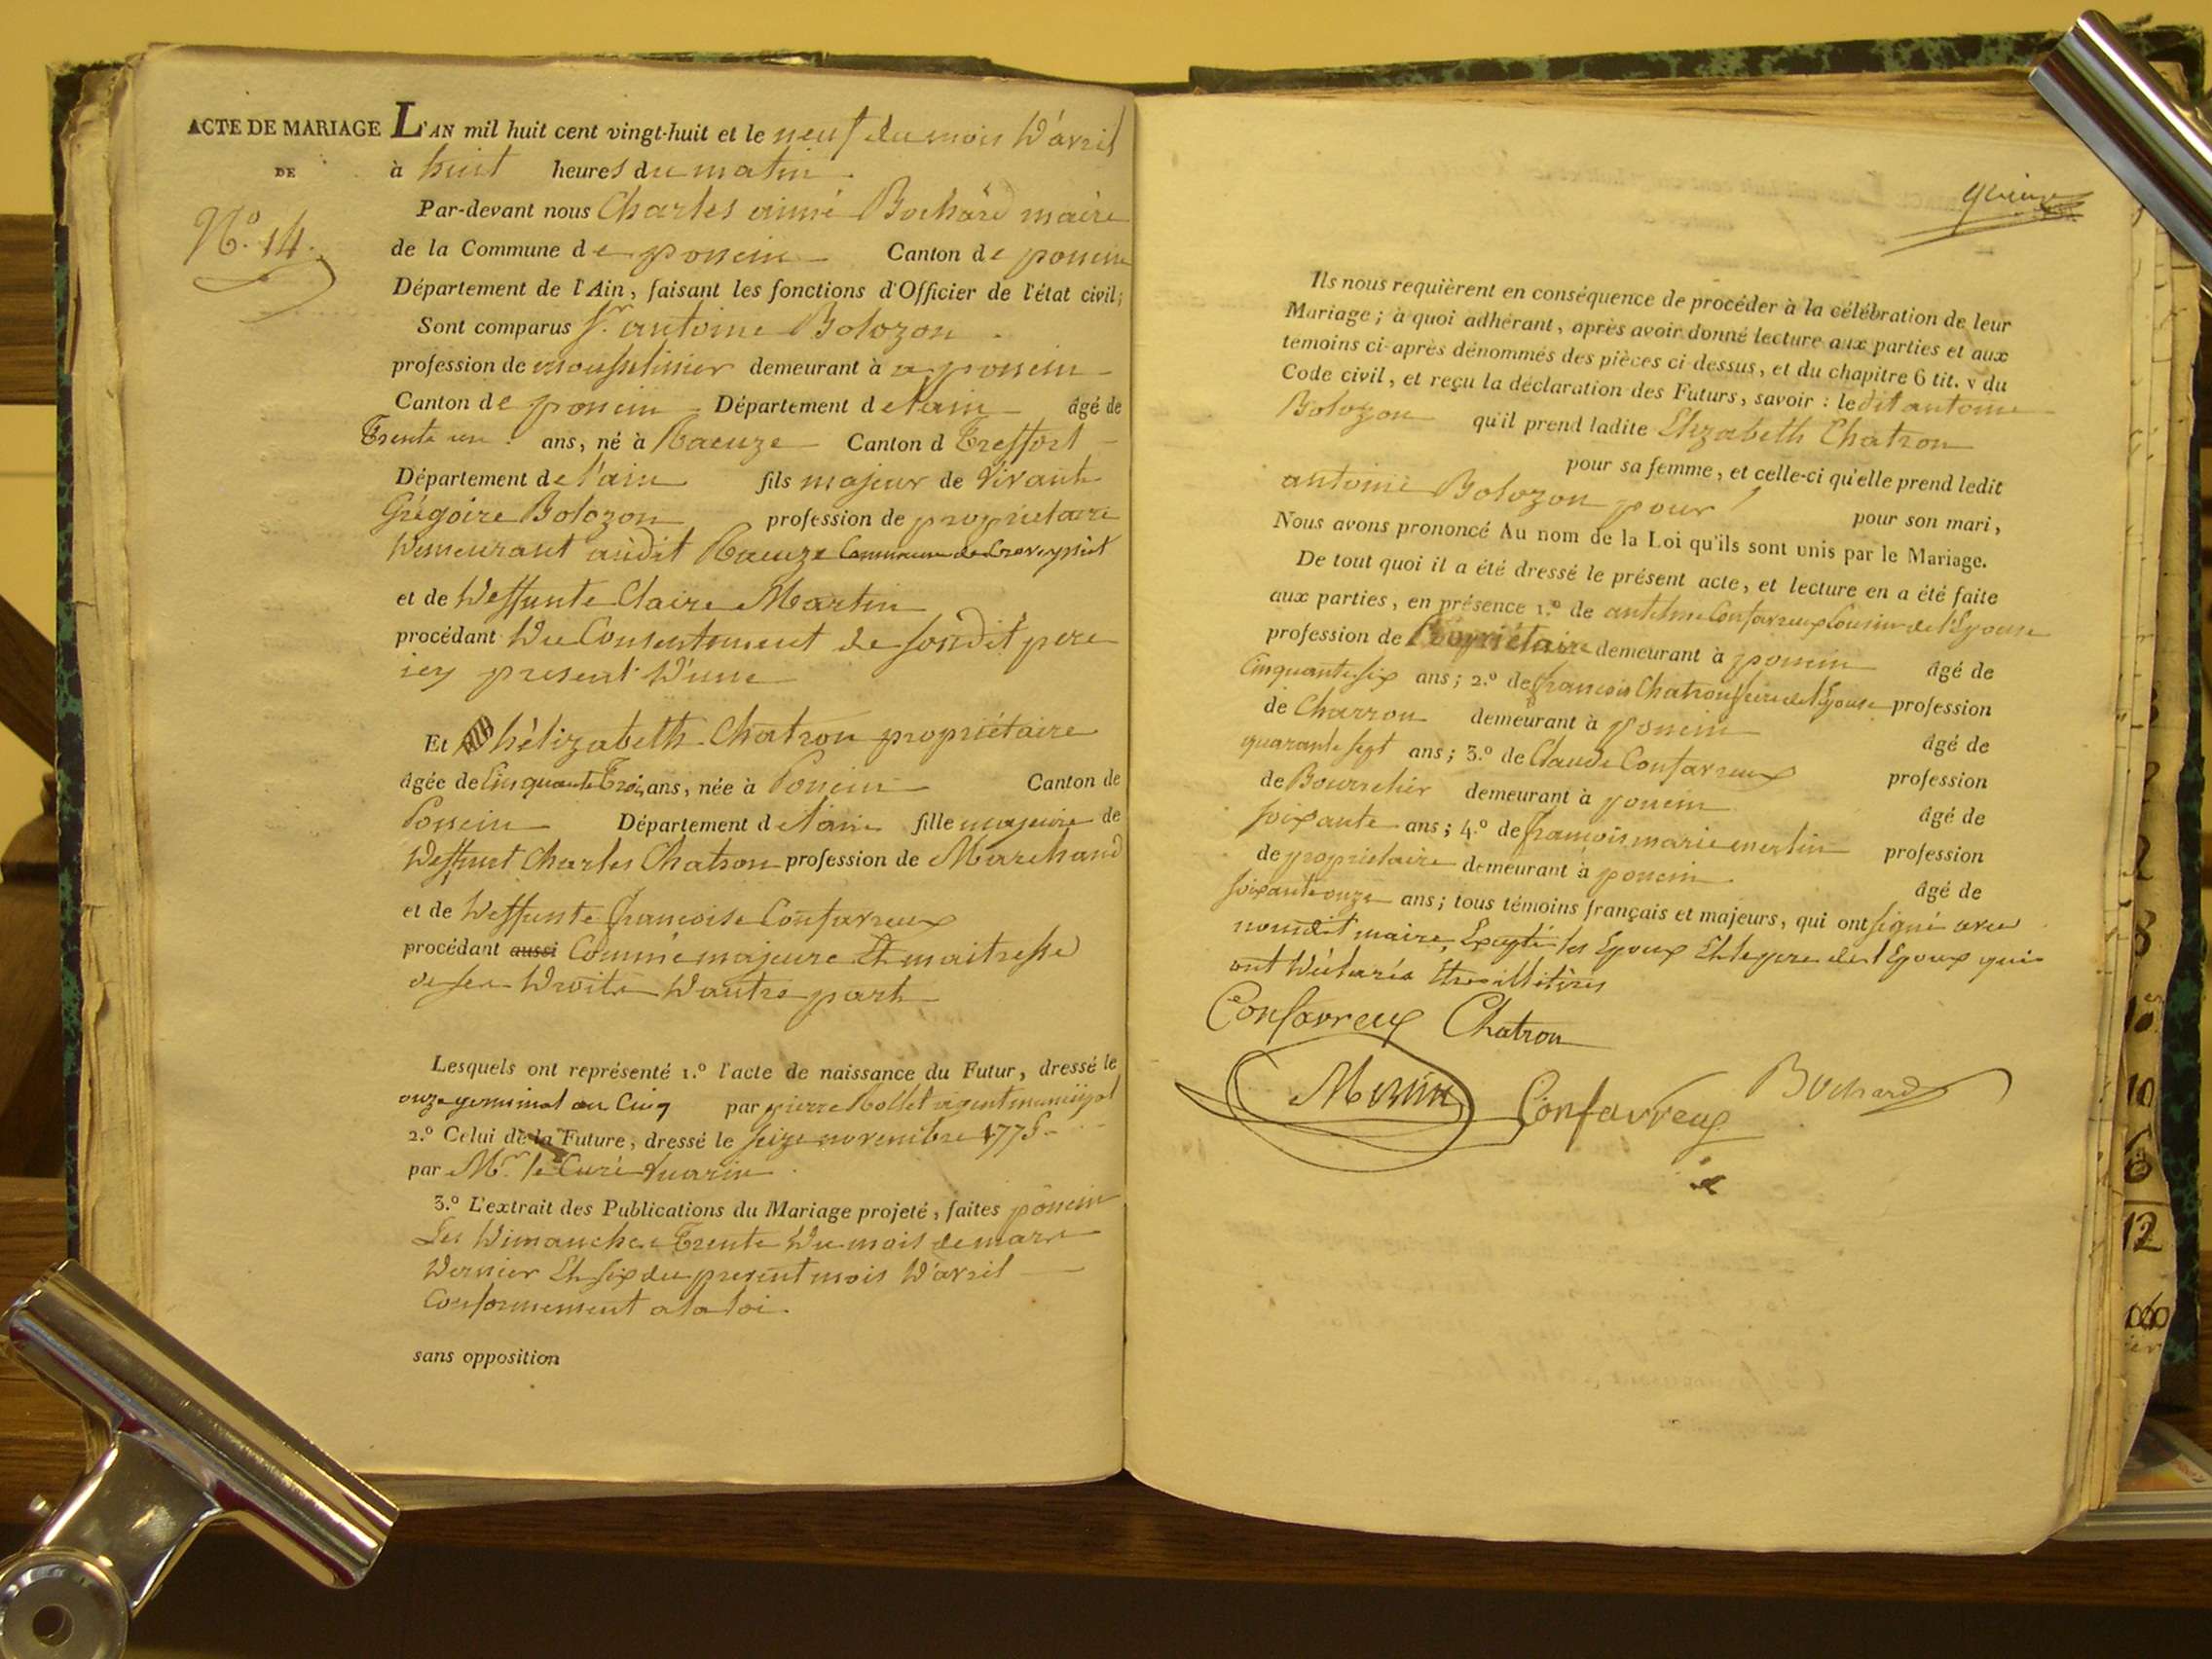 ACTE DE MARIAGE
DE
N.º 14.
L'AN mil huit cent vingt-huit et le neuf du mois d'avril
à huit heures du matin.
Par-devant nous Charles aimé Bochard maire
de la Commune de poncin Canton de poncin
Département de l'Ain, faisant les fonctions d'Officier de l'état civil;
Sont comparus Sr. antoine Bolozon
profession de mousselinier demeurant à a poncin
Canton de poncin Département de l'ain âgé de
Trente un ans, né à Racuze Canton d Treffort
Département de l'ain fils majeur de vivant
Grégoire Bolozon profession de propriétaire
demeurant audit Racuze Commune de
et de deffunte Claire Martin
procédant du Consentement de sondit pere
icy present d'une
Et hélizabeth Chatron propriétaire
âgée de Cinquante Trois ans, née à Poncin Canton de
Poncin Département de l'ain fille majeure de
deffunt Charles Chatron profession de Marchand
et de deffunte francoise Confavreux
procédant aussi Comme majeure Et maitresse
de ses droits d'autre part
Lesquels ont représenté 1.º l'acte de naissance du Futur, dressé le
onze germinal an Cinq par pierre Rollet agent municipal
2.º Celui de la Future, dressé le seize novembre 1775
par Mr. le Curé
3.º L'extrait des Publications du Mariage projeté, faites poncin
Les Dimanches Trente du mois de mars
dernier Et six du present mois d'avril
Conformement a la loi.
sans opposition
Ils nous requièrent en conséquence de procéder à la célébration de leur
Mariage; à quoi adhérant, après avoir donné lecture aux parties et aux
témoins ci-après dénommés des pièces ci-dessus, et du chapitre 6 tit. v du
Code civil, et reçu la déclaration des Futurs, savoir : ledit antoine
Bolozon qu'il prend ladite Elizabeth Chatron
pour sa femme, et celle-ci qu'elle prend ledit
antoine Bolozon pour pour son mari,
Nous avons prononcé Au nom de la Loi qu'ils sont unis par le Mariage.
De tout quoi il a été dressé le présent acte, et lecture en a été faite
aux parties, en présence 1.º de antelme Confavreux Cousin de l'Epouse
profession de Propriétaire demeurant à poncin âgé de
Cinquante six ans; 2.º de francois Chatron frere de l'Epouse profession
de Charron demeurant à poncin âgé de
quarante sept ans; 3.º de Claude Confavreux profession
de Bourrelier demeurant à poncin âgé de
soixante ans; 4.º de francois marie merlin profession
de propriétaire demeurant à poncin âgé de
soixante onze ans; tous témoins français et majeurs, qui ont signé avec
nous dit maire, Excepté les Epoux Et le pere de l'Epoux qui
ont déclarés Etre illitérés
Confavreux Chatron
Merlin Confavreux Bochard